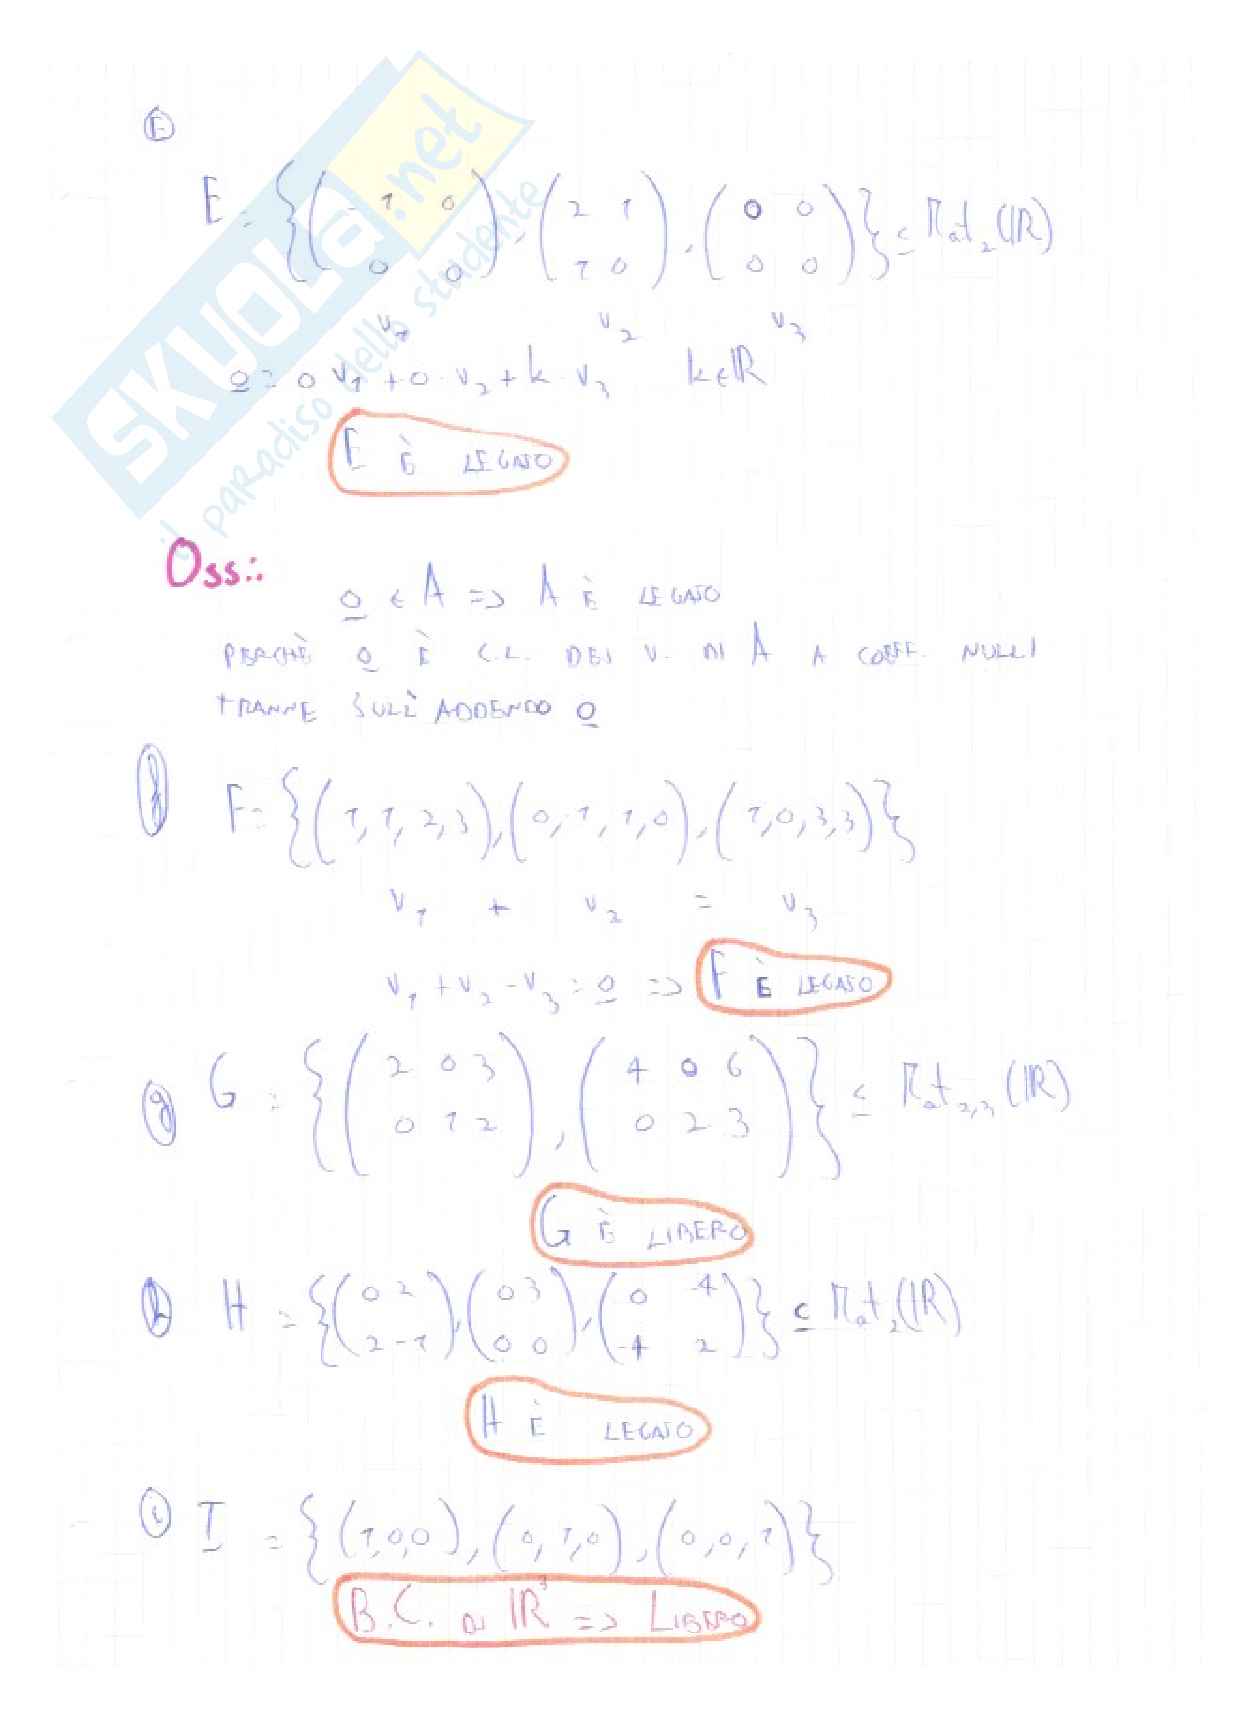 E
E = {(-1 0 / 0 0), (2 1 / 1 0), (0 0 / 0 0)} ⊆ Mat₂(ℝ)
v₁ v₂ v₃
0 = 0 v₁ + 0 · v₂ + k · v₃ k ∈ ℝ
E È LEGATO
Oss.:
0 ∈ A => A È LEGATO
PERCHÈ 0 È C.L. DEI V. DI A A COEFF. NULLI
TRANNE SULL'ADDENDO 0
f F = {(1, 1, 2, 3), (0, -1, 1, 0), (1, 0, 3, 3)}
v₁ + v₂ = v₃
v₁ + v₂ - v₃ = 0 => F È LEGATO
g G = {(2 0 3 / 0 1 2), (4 0 6 / 0 2 3)} ⊆ Mat₂,₃(ℝ)
G È LIBERO
h H = {(0 2 / 2 -1), (0 3 / 0 0), (0 -4 / -4 2)} ⊆ Mat₂(ℝ)
H È LEGATO
i I = {(1,0,0), (0,1,0), (0,0,1)}
B.C. DI ℝ³ => LIBERO
SKUOLA.net
il paradiso dello studente